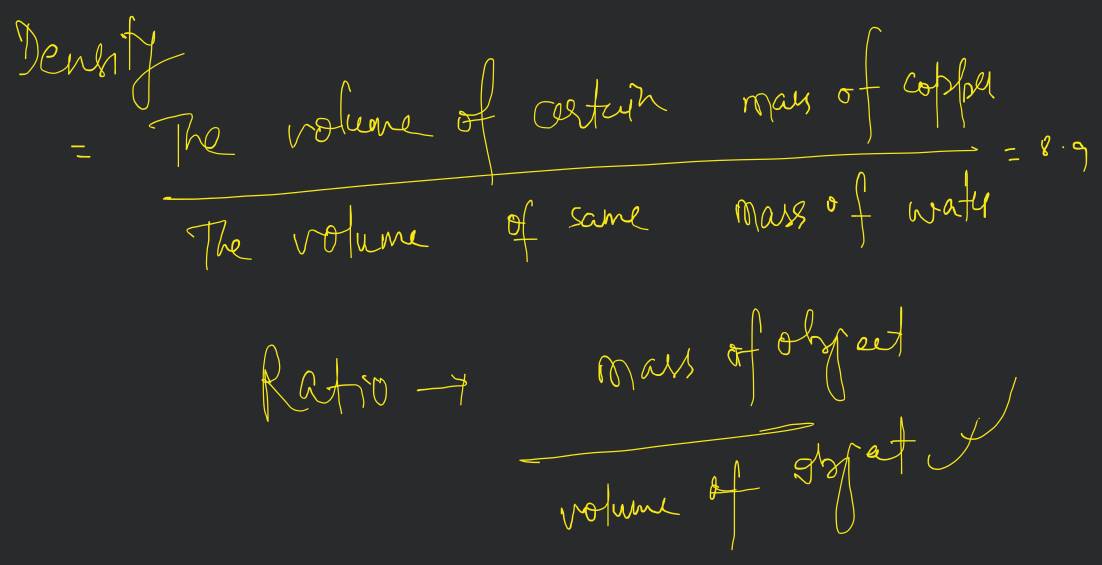 Density
= The volume of certain mass of copper = 8.9
The volume of same mass of water
Ratio → mass of object
volume of object ✓